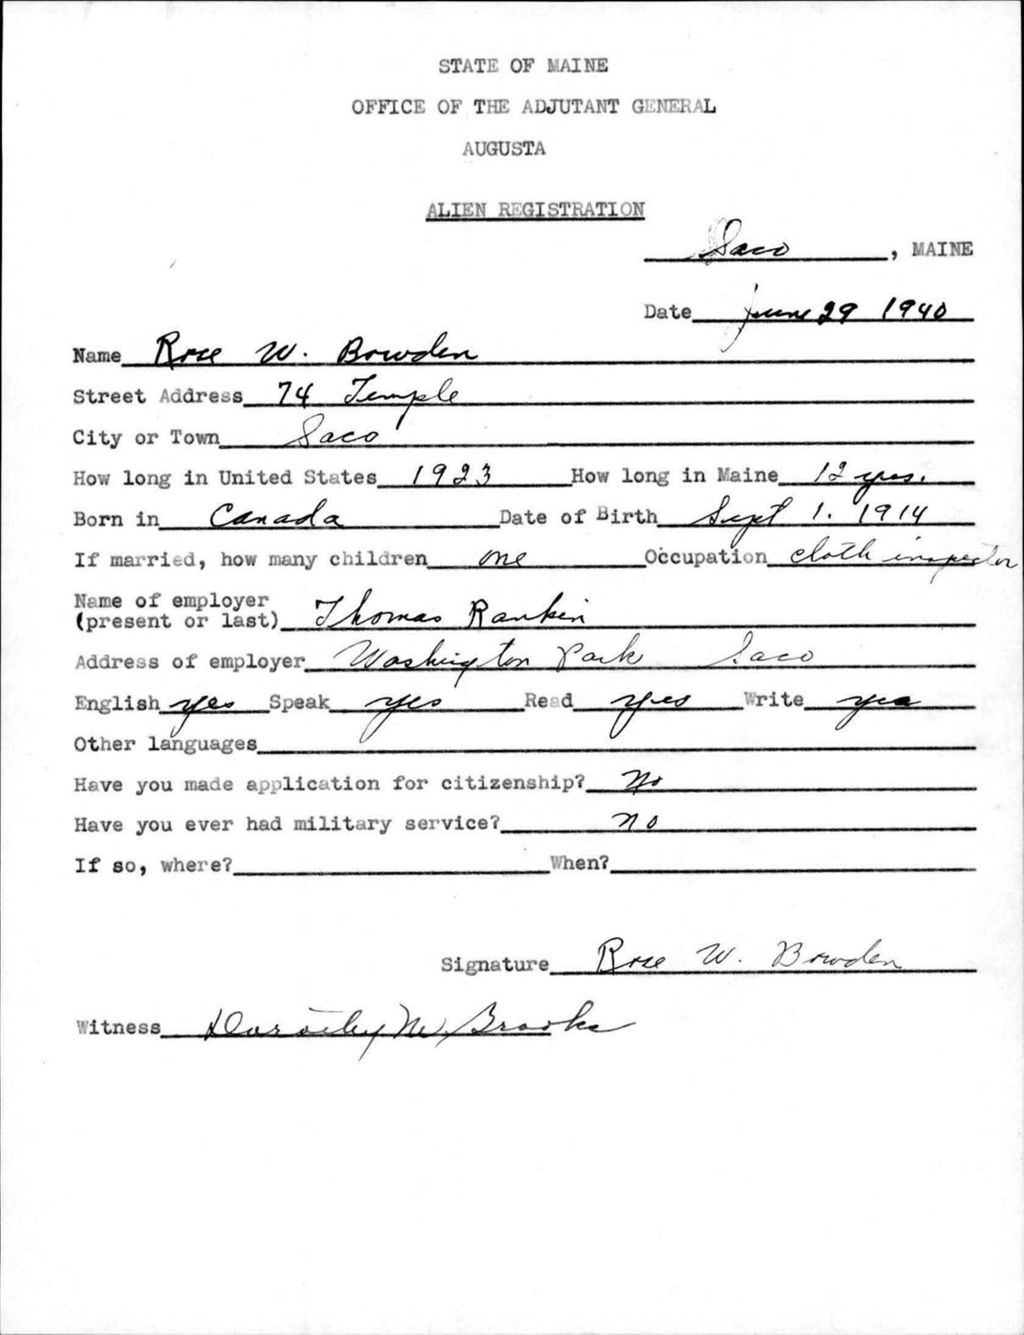 STATE OF MAINE
OFFICE OF THE ADJUTANT GENERAL
AUGUSTA
ALIEN REGISTRATION
Saco, MAINE
Date June 29 1940
Name Rose W. Bowden
Street Address 74 Temple
City or Town Saco
How long in United States 1923 How long in Maine 12 yrs.
Born in Canada Date of Birth Sept 1. 1914
If married, how many children one Occupation cloth inspector
Name of employer
(present or last) Thomas Rankin
Address of employer Washington Park Saco
English yes Speak yes Read yes Write yes
Other languages
Have you made application for citizenship? No
Have you ever had military service? no
If so, where? When?
Signature Rose W. Bowden
Witness Dorothy M. Brooks